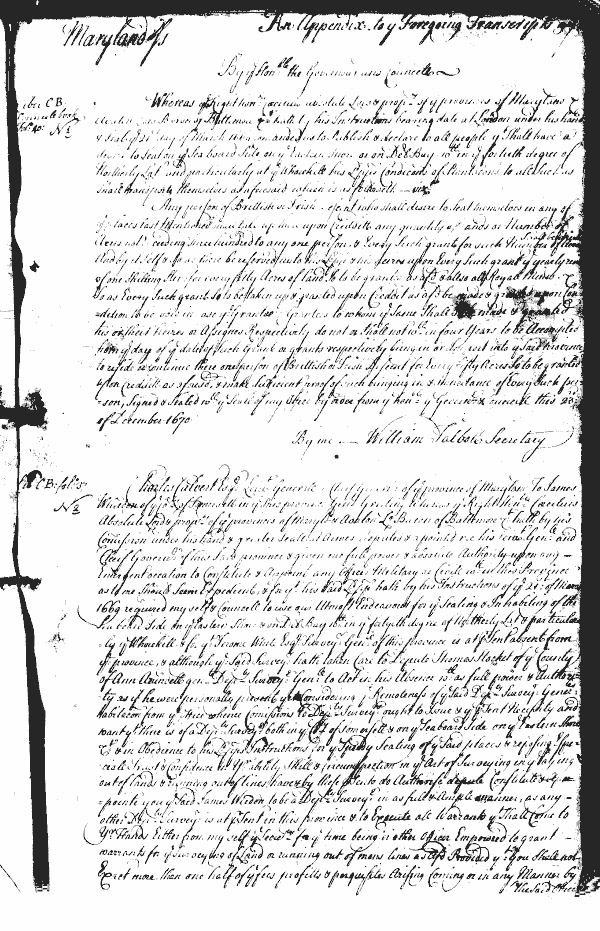 Maryland ss
An Appendix to ye Foregoing Transcripts
By ye Honble the Governour and Councell
Liber C B:
Councell book
fol: 40: No 1
Whereas ye Right honble Cæcilius absolute Lord & propr of ye provinces of Maryland &
Avalon Lord Baron of Baltimore &c hath by his Instructions bearing date at London under his hand
& Seal ye day of March 1669 comanded us to Publish & declare to all people yt Shall have a
desire to Seat on ye Seaboard Side on ye Eastern Shore or on Del Bay wthin ye fortieth degree of
Northerly Latt and particularly at ye Whorekill his Lspps Conditions of Plantations to all Such as
Shall transporte themselves as aforesaid which is as followeth viz
Any person of Brittish or Irish descent who shall desire to Seat themselves in any of
ye places last Mentioned may take up there upon Creditt any quantity of Lands or Number of
Acres not Exceeding three hundred to any one person & Every Such grant for such Number of
of one Shilling Ster for every fifty Acres of land So to be granted as afsd
So as Every Such grant So to be taken up & passed upon Creditt as afsd be made & granted upon Con-
-dition to be void in case ye Grantee or Grantees to whom ye Same Shall be made & granted
his or their heires or Assignes Respectively do not or shall not wthin four Years to be Accompted
from ye day of ye date of Such Grant or grants respectively bring in or Transport into ye Said Province
to reside & continue there one person of Brittish or Irish descent for Every fifty Acres So to be granted
upon Creditt as aforesd, & make Sufficient proof of Such bringing in & inhabitance of Every Such per-
-son, Signed & Sealed wth ye Seale of my Office by order from ye honble ye Governr & councell this 22
of December 1670
By me William Talbot Secretary
Lib C B: fol: 5:
No 2
Charles Calvert Esqr Lieut Generall & Chief Governr of ye province of Maryland To James
Weedon of ye Co of Somersett in ye Said province Gent Greeting Whereas ye Right Honble Cæcilius
Absolute Lord & propr of ye provinces of Maryld & Avalon Ld Baron of Baltimore &c hath by his
Comission under his hand & greater Seale at Armes deputed & appointed me his Lieut Genll and
Chief Governr of this Said province & given me full power & absolute Authority upon any
Emergent occation to Constitute & Appoint any Officer Millitary or Civill wthin this Province
as to me should Seem Expedient, & for yt his Said Lspp hath by his Instructions of ye 28th of March
1669 required my self & Councell to use our Utmost Endeavours for ye Seating & Inhabiting of the
Sea board Side on ye Eastern Shore & on Del Bay wthin ye fortyeth degree of Northerly Latt & particular-
ly ye Whorekill & for yt Jerome White Esqr Surveyr Genll of this province is at psent absent from
ye province, & although ye Said Surveyr hath taken care to Depute Thomas Stocket of ye County
of Ann Arundell gent Depty Surveyr Genll to Act in his Absence wth as full power & Authori-
ty as if he were personally present yet Considering ye Remoteness of ye Said Depty Surveyr Genlls
habitacon from ye place whence Comissions to Depty Surveyrs ought to Issue & ye psent Necessity and
want yt there is of a Depty Surveyr both in ye Co of Somersett & on ye Seaboard Side on ye Eastern Shore
& in Obedience to his Lspps Instructions For ye Speedy Seating of ye Said places & reposing Spe-
ciall Trust & Confidence in Yr fidelity Skill & circumspection in ye Act of Surveying in ye laying
out of lands & running out of lines have & by these psents do Authorise depute Constitute & Ap-
-pointe you ye Said James Weedon to be a Depty Surveyr in as full & Ample manner, as any
other Depty Surveyr is at psent in this province & to Execute all Warrants yt Shall Come to
Yr Hands Either from my self ye Secretry for ye time being or other Officer Empowred to grant
warrants for ye Surveying of Land or running out of mens lines as afsd Provided yt you Shall not
Exact more than one half of ye fees proffitts & perquisites Arising Coming or in any Manner by
The Said Office